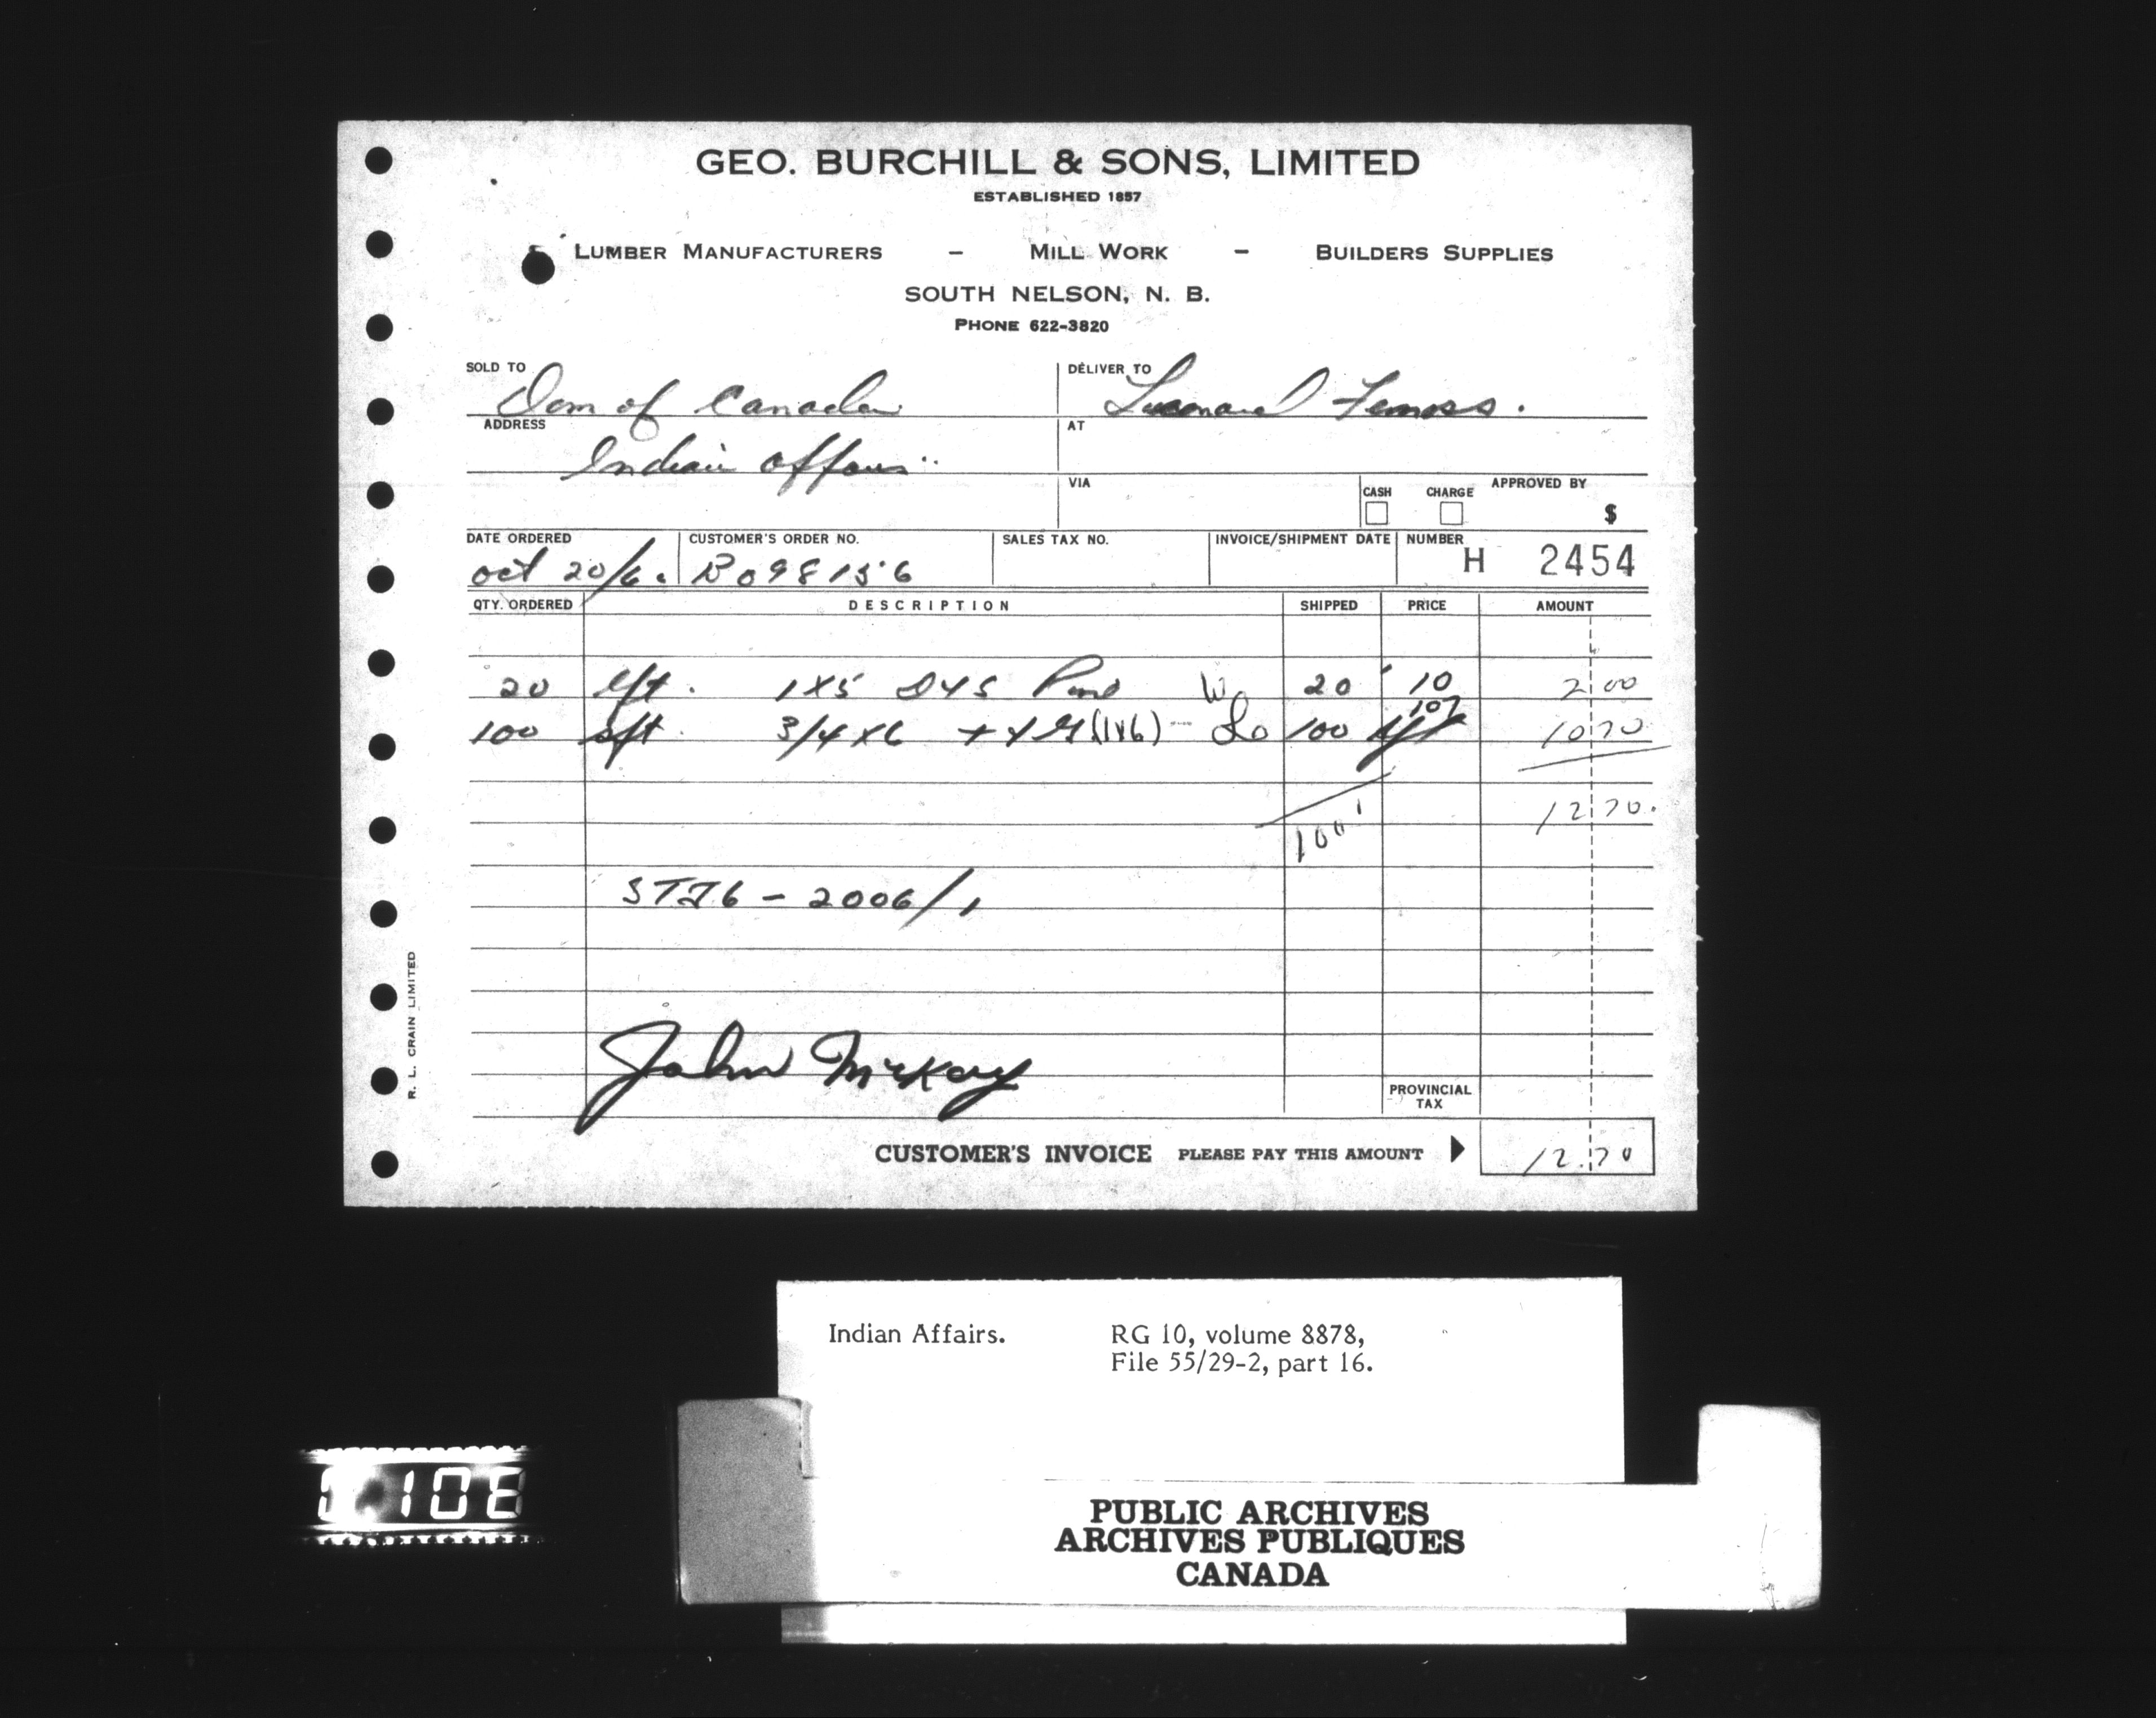 GEO. BURCHILL & SONS, LIMITED
ESTABLISHED 1857
LUMBER MANUFACTURERS – MILL WORK – BUILDERS SUPPLIES
SOUTH NELSON, N. B.
PHONE 622-3820
SOLD TO Dom of Canada
DELIVER TO
ADDRESS Indian Affairs
AT
VIA
CASH CHARGE APPROVED BY $
DATE ORDERED CUSTOMER'S ORDER NO. SALES TAX NO. INVOICE/SHIPMENT DATE NUMBER
Oct 20/6 B098156 H 2454
QTY. ORDERED DESCRIPTION SHIPPED PRICE AMOUNT
20 lft. 1X5 D4S 20 10 2 00
100 sft. 3/4 X6 (1X6) 100 107 10 70
100'
12 70.
2006/1
John McKay
PROVINCIAL TAX
CUSTOMER'S INVOICE PLEASE PAY THIS AMOUNT 12.70
R. L. CRAIN LIMITED
Indian Affairs. RG 10, volume 8878,
File 55/29-2, part 16.
PUBLIC ARCHIVES
ARCHIVES PUBLIQUES
CANADA